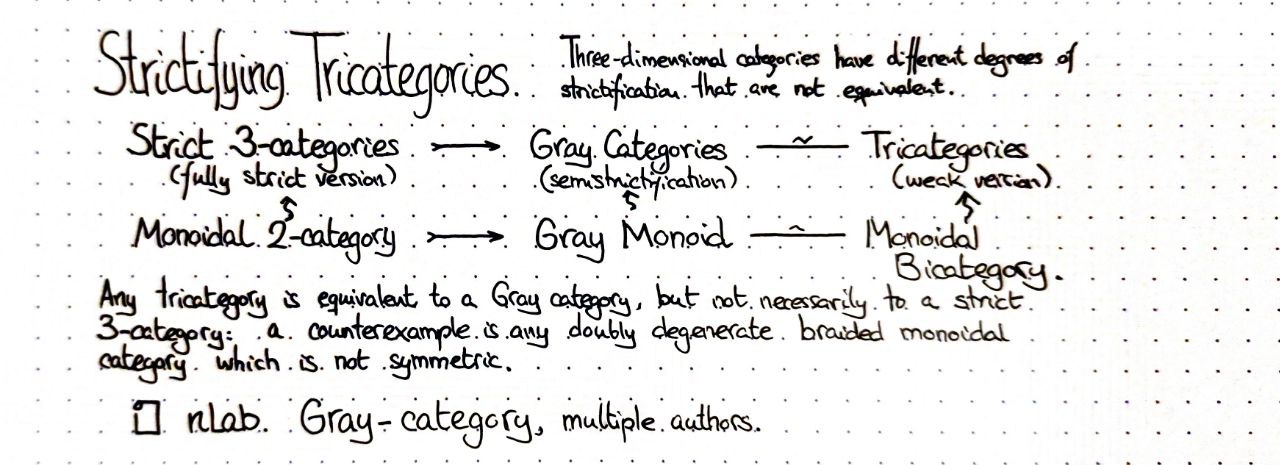 Strictifying Tricategories.
Three-dimensional categories have different degrees of
strictification that are not equivalent.
Strict 3-categories → Gray Categories ~ Tricategories
(fully strict version) (semistrictification) (weak version)
Monoidal 2-category → Gray Monoid ~ Monoidal
Bicategory.
Any tricategory is equivalent to a Gray category, but not necessarily to a strict
3-category: a counterexample is any doubly degenerate braided monoidal
category which is not symmetric.
nLab. Gray-category, multiple authors.